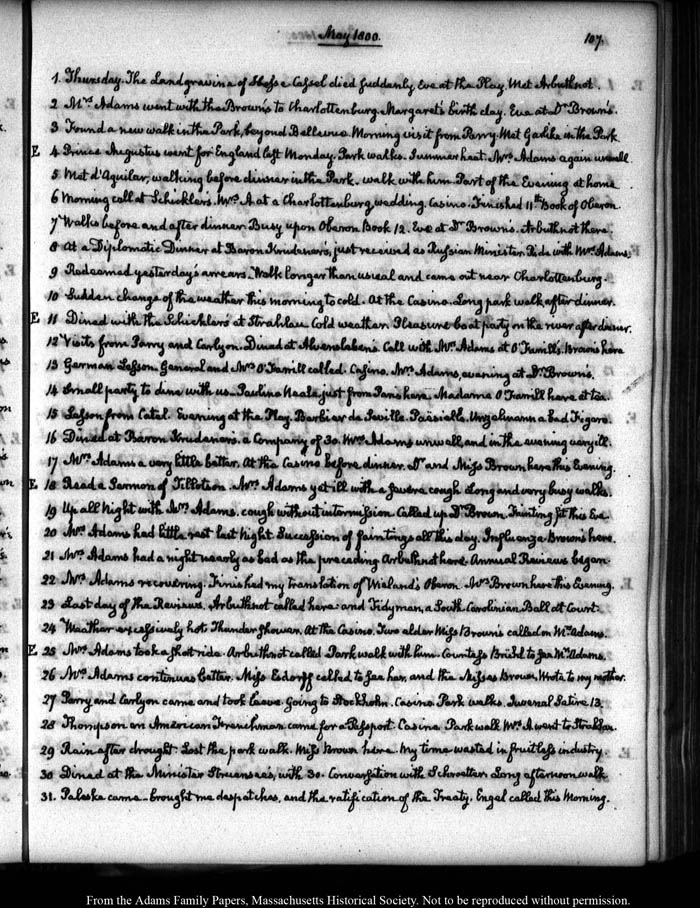 May 1800.
107.
1. Thursday. The Landgravine of Hesse Cassel died suddenly. Eve at the Play. Met Arbuthnot.
2 Mrs Adams went with the Brown's to Charlottenburg. Margaret's birth day. Eve at Dr Brown's.
3 Found a new walk in the Park, beyond Bellevue. Morning visit from Parry. Met Garlike in the Park
E 4 Prince Augustus went for England last Monday. Park walks. Summer heat. Mrs Adams again unwell
5 Met d'Aguilar, walking before dinner in the Park. walk with him Part of the Evening at home
6 Morning call at Schickler's. Mrs A. at a Charlottenburg wedding. Casino. Finished 11th Book of Oberon
7 Walks before and after dinner. Busy upon Oberon Book 12. Eve at Dr Brown's. Arbuthnot there.
8 At a Diplomatic Dinner at Baron Krudener's, just received as Russian Minister. Ride with Mrs Adams.
9 Redeemed yesterday's arrears. Walk longer than usual and came out near Charlottenburg.
10 Sudden change of the weather this morning to cold. At the Casino. Long park walk after dinner.
E 11 Dined with the Schicklers at Strahlau Cold weather. Pleasure boat party on the river after dinner.
12 Visits from Parry and Carlyon. Dined at Alvensleben's. Call with Mrs Adams at O'Farrill's. Browns here
13 German Lesson General and Mrs O'Farrill called. Casino. Mrs Adams, evening at Dr Brown's.
14 Small party to dine with us. Pauline Neale, just from Paris here. Madame O'Farrill here at tea.
15 Lesson from Catel. Evening at the Play. Barbier de Seville. Paesiello. Unzelmann a bad Figaro.
16 Dined at Baron Krudener's. a Company of 30. Mrs Adams unwell, and in the evening very ill.
17 Mrs Adams a very little better. At the Casino before dinner. Dr and Miss Brown here this Evening.
E 18 Read a Sermon of Tillotson. Mrs Adams yet ill with a severe cough Long and very busy walks.
19 Up all Night with Mrs Adams. cough without intermission. Called up Dr Brown. Fainting fit this Eve.
20 Mrs Adams had little rest last Night. Succession of faintings all this day. Influenza. Brown's here.
21 Mrs Adams had a night nearly as bad as the preceding Arbuthnot here. Annual Reviews began.
22 Mrs Adams recovering. Finished my translation of Wieland's Oberon. Mrs Brown here this Evening.
23 Last day of the Reviews. Arbuthnot called here: and Tidyman, a South Carolinian Ball at Court.
24 Weather excessively hot. Thunder shower. At the Casino. Two elder Miss Browns called on Mrs Adams.
E 25 Mrs Adams took a short ride. Arbuthnot called Park walk with him. Countess Brühl to see Mrs Adams.
26 Mrs Adams continues better. Miss Esdorff called to see her, and the Misses Brown. Wrote to my mother.
27 Parry and Carlyon came and took leave. Going to Stockholm. Casino. Park walks. Juvenal Satire 13.
28 Thompson an American Frenchman came for a Passport. Casino. Park walk Mrs A went to Strahlau.
29 Rain after drought. Lost the park walk. Miss Brown here. My time wasted in fruitless industry.
30 Dined at the Minister Struensee's, with 30. Conversation with Schroetter. Long afternoon walk
31. Paleske came brought me despatches, and the ratification of the Treaty. Engel called this Morning.
From the Adams Family Papers, Massachusetts Historical Society. Not to be reproduced without permission.